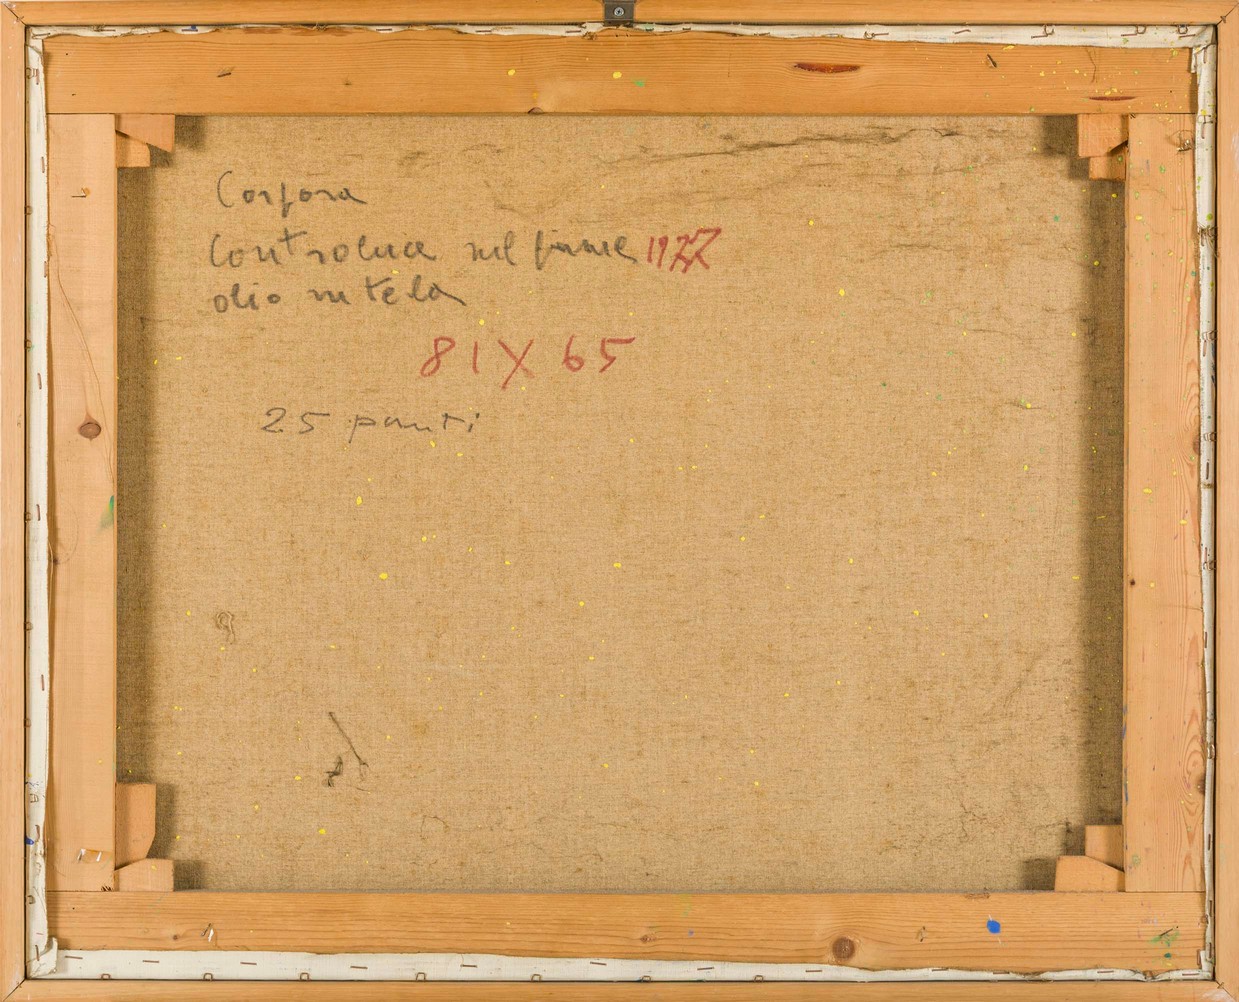 Corpora
Controluce nel fiume 1977
olio su tela
81 X 65
25 punti